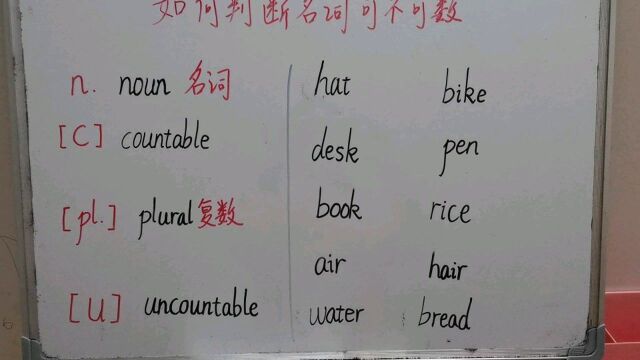 如何判断名词可不可数
n. noun 名词
[C] countable
[pl.] plural 复数
[U] uncountable
hat bike
desk pen
book rice
air hair
water bread